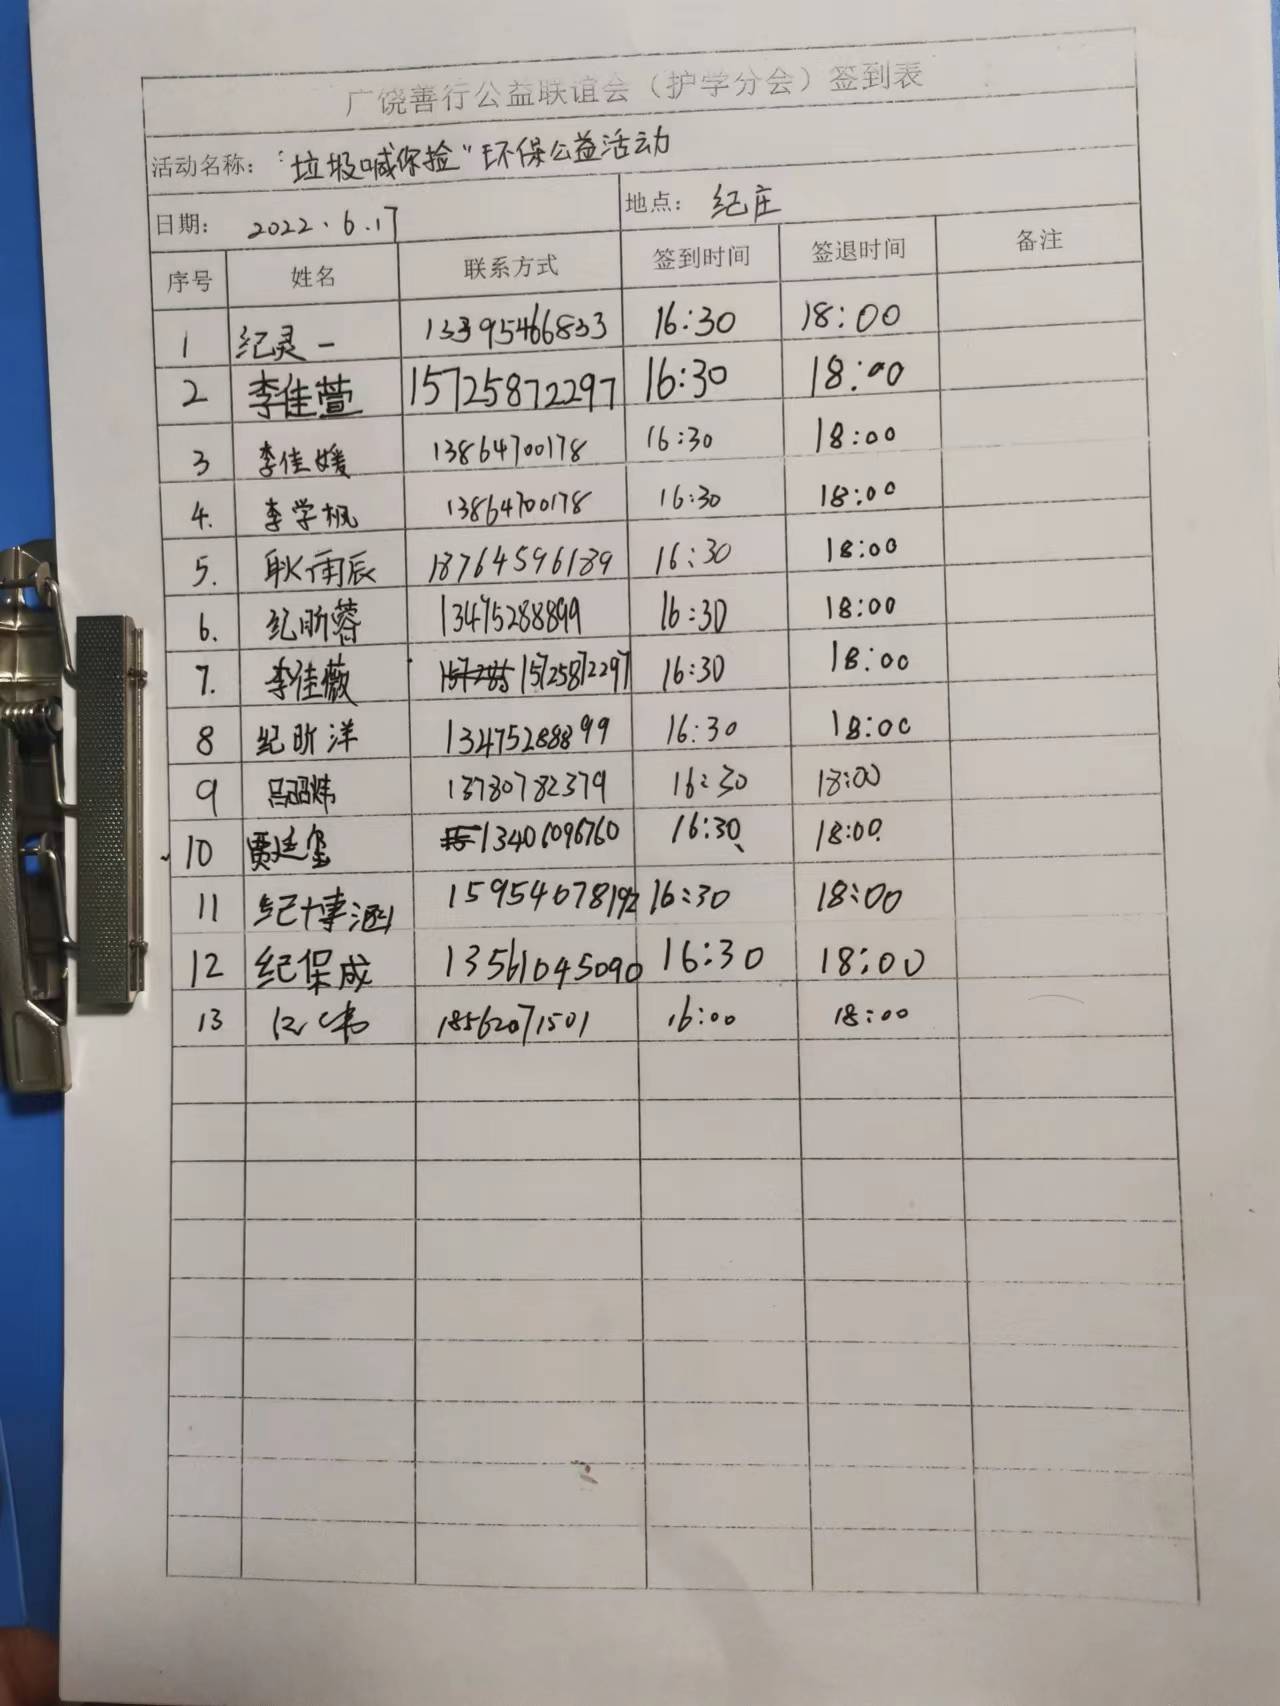 广饶善行公益联谊会（护学分会）签到表
活动名称：“垃圾喊你捡”环保公益活动
日期： 2022.6.17 地点： 纪庄
序号 姓名 联系方式 签到时间 签退时间 备注
1 纪灵一 13395466833 16:30 18:00
2 李佳萱 15725872297 16:30 18:00
3 李佳媛 13864700178 16:30 18:00
4. 李学枫 13864700178 16:30 18:00
5. 耿雨辰 18764596189 16:30 18:00
6. 纪昕蓉 13475288899 16:30 18:00
7. 李佳薇 15725872297 16:30 18:00
8 纪昕洋 13475288899 16:30 18:00
9 吕昭炜 13780782379 16:30 18:00
10 贾廷玺 13406096760 16:30 18:00
11 纪 涵 15954078192 16:30 18:00
12 纪保成 13561045090 16:30 18:00
13 18562071501 16:00 18:00